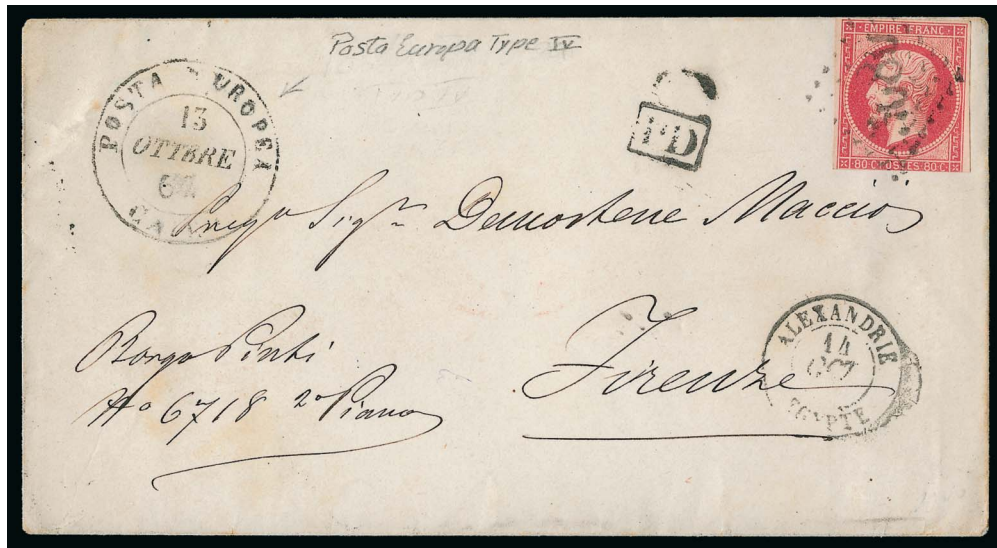 Posta Europa Type IV
POSTA EUROPEA
13
OTTBRE
CAI
PD
EMPIRE FRANC
80 C POSTES 80 C
Sigr Demostene Maccio
Borgo Pinti
No 6718 2o Piano
Firenze
ALEXANDRIE
14
OCT
EGYPTE